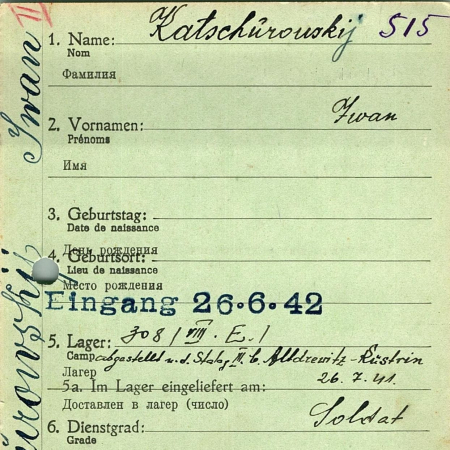 II
1. Name: Katschúrouskij 515
Nom
Фамилия
2. Vornamen: Iwan
Prénoms
Имя
3. Geburtstag:
Date de naissance
День рождения
4. Geburtsort:
Lieu de naissance
Место рождения
Eingang 26.6.42
5. Lager: 308 / VIII. E. /
Camp abgestellt n.d. Stalag III C Altdrewitz-Küstrin
Лагерь
26.7.41.
5a. Im Lager eingeliefert am:
Доставлен в лагерь (число)
6. Dienstgrad: Soldat
Grade
Iwan
úrowskij